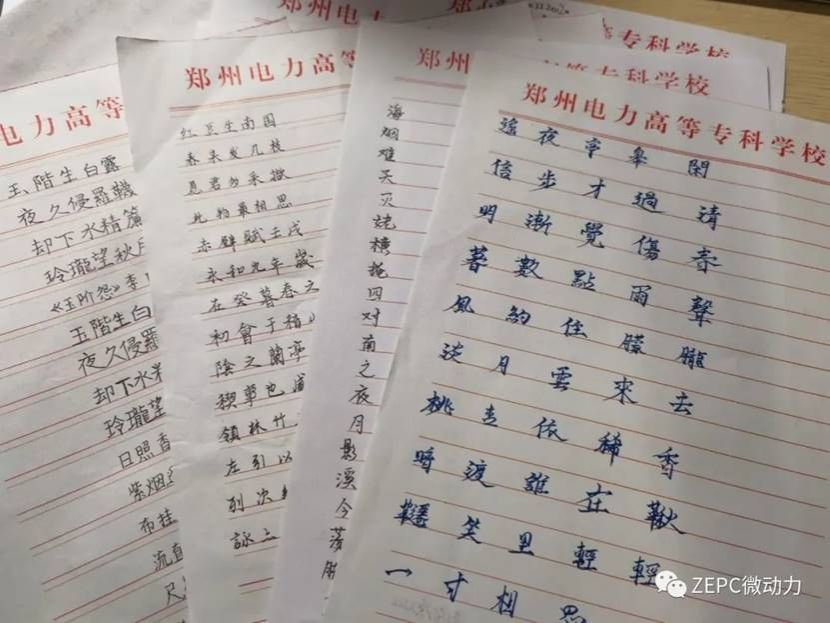 电力高等
玉階生白露
夜久侵羅襪
却下水精簾
玲瓏望秋月
《玉阶怨》李
玉階生白
夜久侵羅
却下水
玲瓏望
日照香
紫烟
布挂
流直
尺
郑州电力高
红豆生南国
春来发几枝
愿君勿采撷
此物最相思
赤壁賦壬戌
永和九年歲
在癸暮春之
初會于稽
陰之蘭亭
稧事也
領林竹
左引以
列次
詠
郑州
海
烟
难
天
灭
姥
横
掩
四
对
南
之
夜
月
影
溪
今
荡
专科学校
专科学校
郑州电力高等专科学校
遥夜亭皋閑
信步才過清
明漸覺傷春
暮數點雨聲
風約住朦朧
淡月雲來去
桃杏依稀香
暗渡誰在鞦
韆笑里輕輕
一寸相思
ZEPC微动力